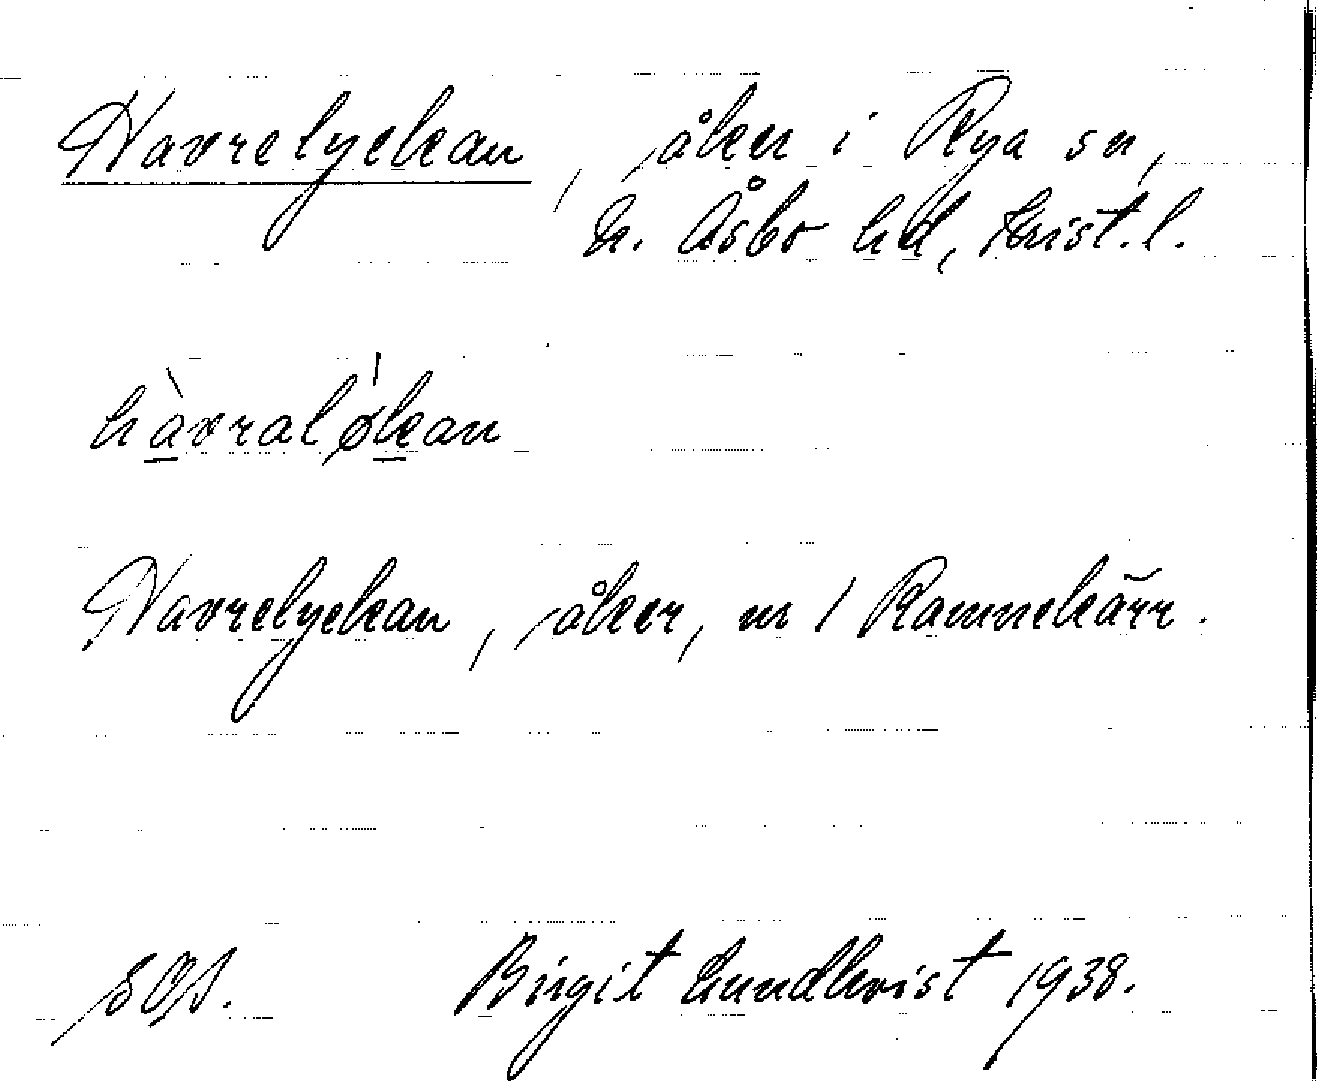 Havrelyckan, åker i Rya sn,
N. Åsbo hd, Krist. l.
hàvraløkan
Havrelyckan, åker, nr 1 Ramnekärr.
SOS. Birgit Lundkvist 1938.